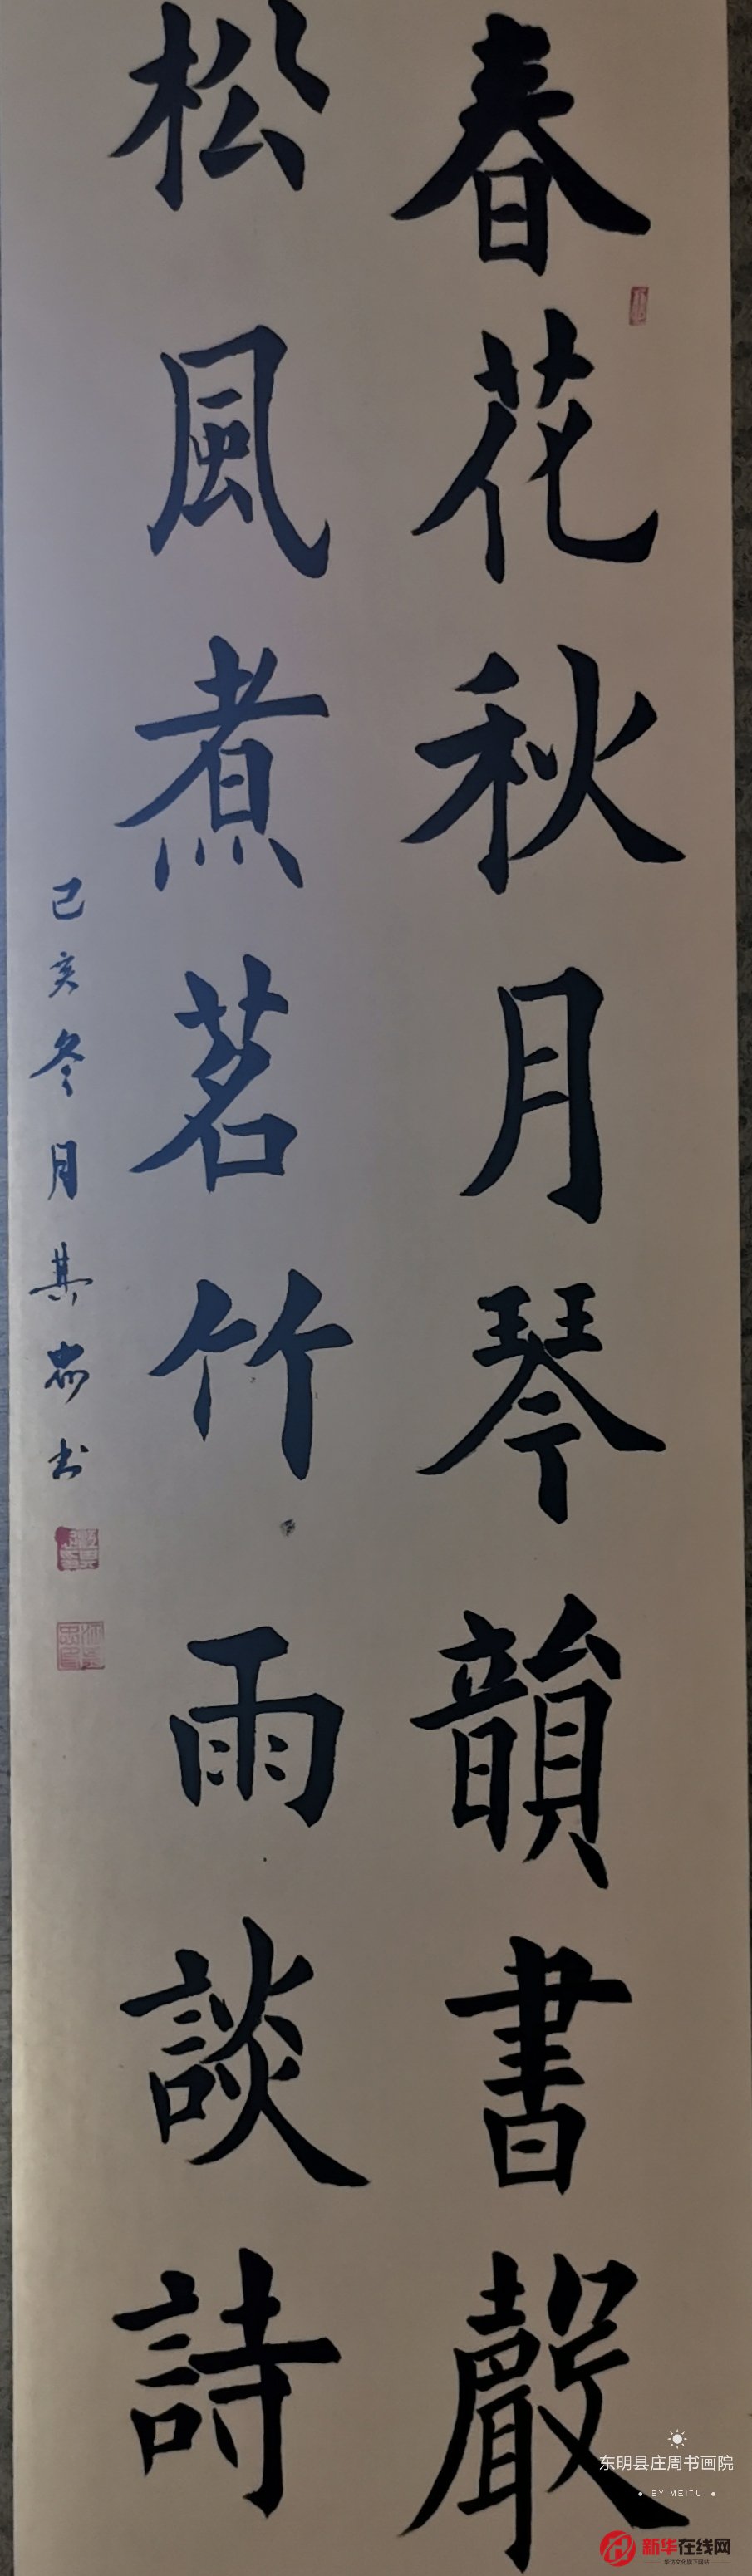 春花秋月琴韻書聲
松風煮茗竹雨談詩
己亥冬月其忠书
东明县庄周书画院
BY MEITU
新华在线网